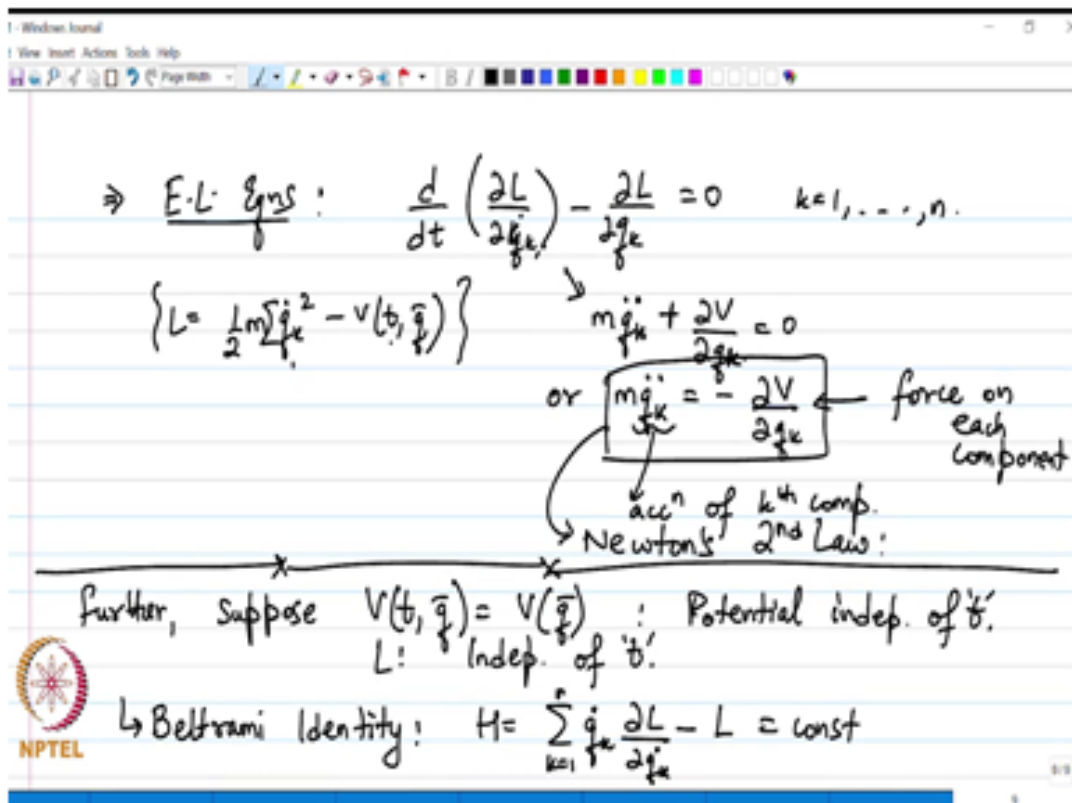 - Windows Journal
View Insert Actions Tools Help
Page Width
B I
⇒ E.L. Eqns : d/dt (∂L/∂q̇k) − ∂L/∂qk = 0 k=1, . . . . , n.
{L = 1/2 m Σ q̇k² − V(t, q̄)}
m q̈k + ∂V/∂qk = 0
or m q̈k = − ∂V/∂qk ← force on each component
accⁿ of kᵗʰ comp.
Newton's 2nd Law :
further, suppose V(t, q̄) = V(q̄) : Potential indep. of 't'.
L : Indep. of 't'.
↳ Beltrami Identity : H = Σ_{k=1}^{n} q̇k ∂L/∂q̇k − L = const
NPTEL
9/9